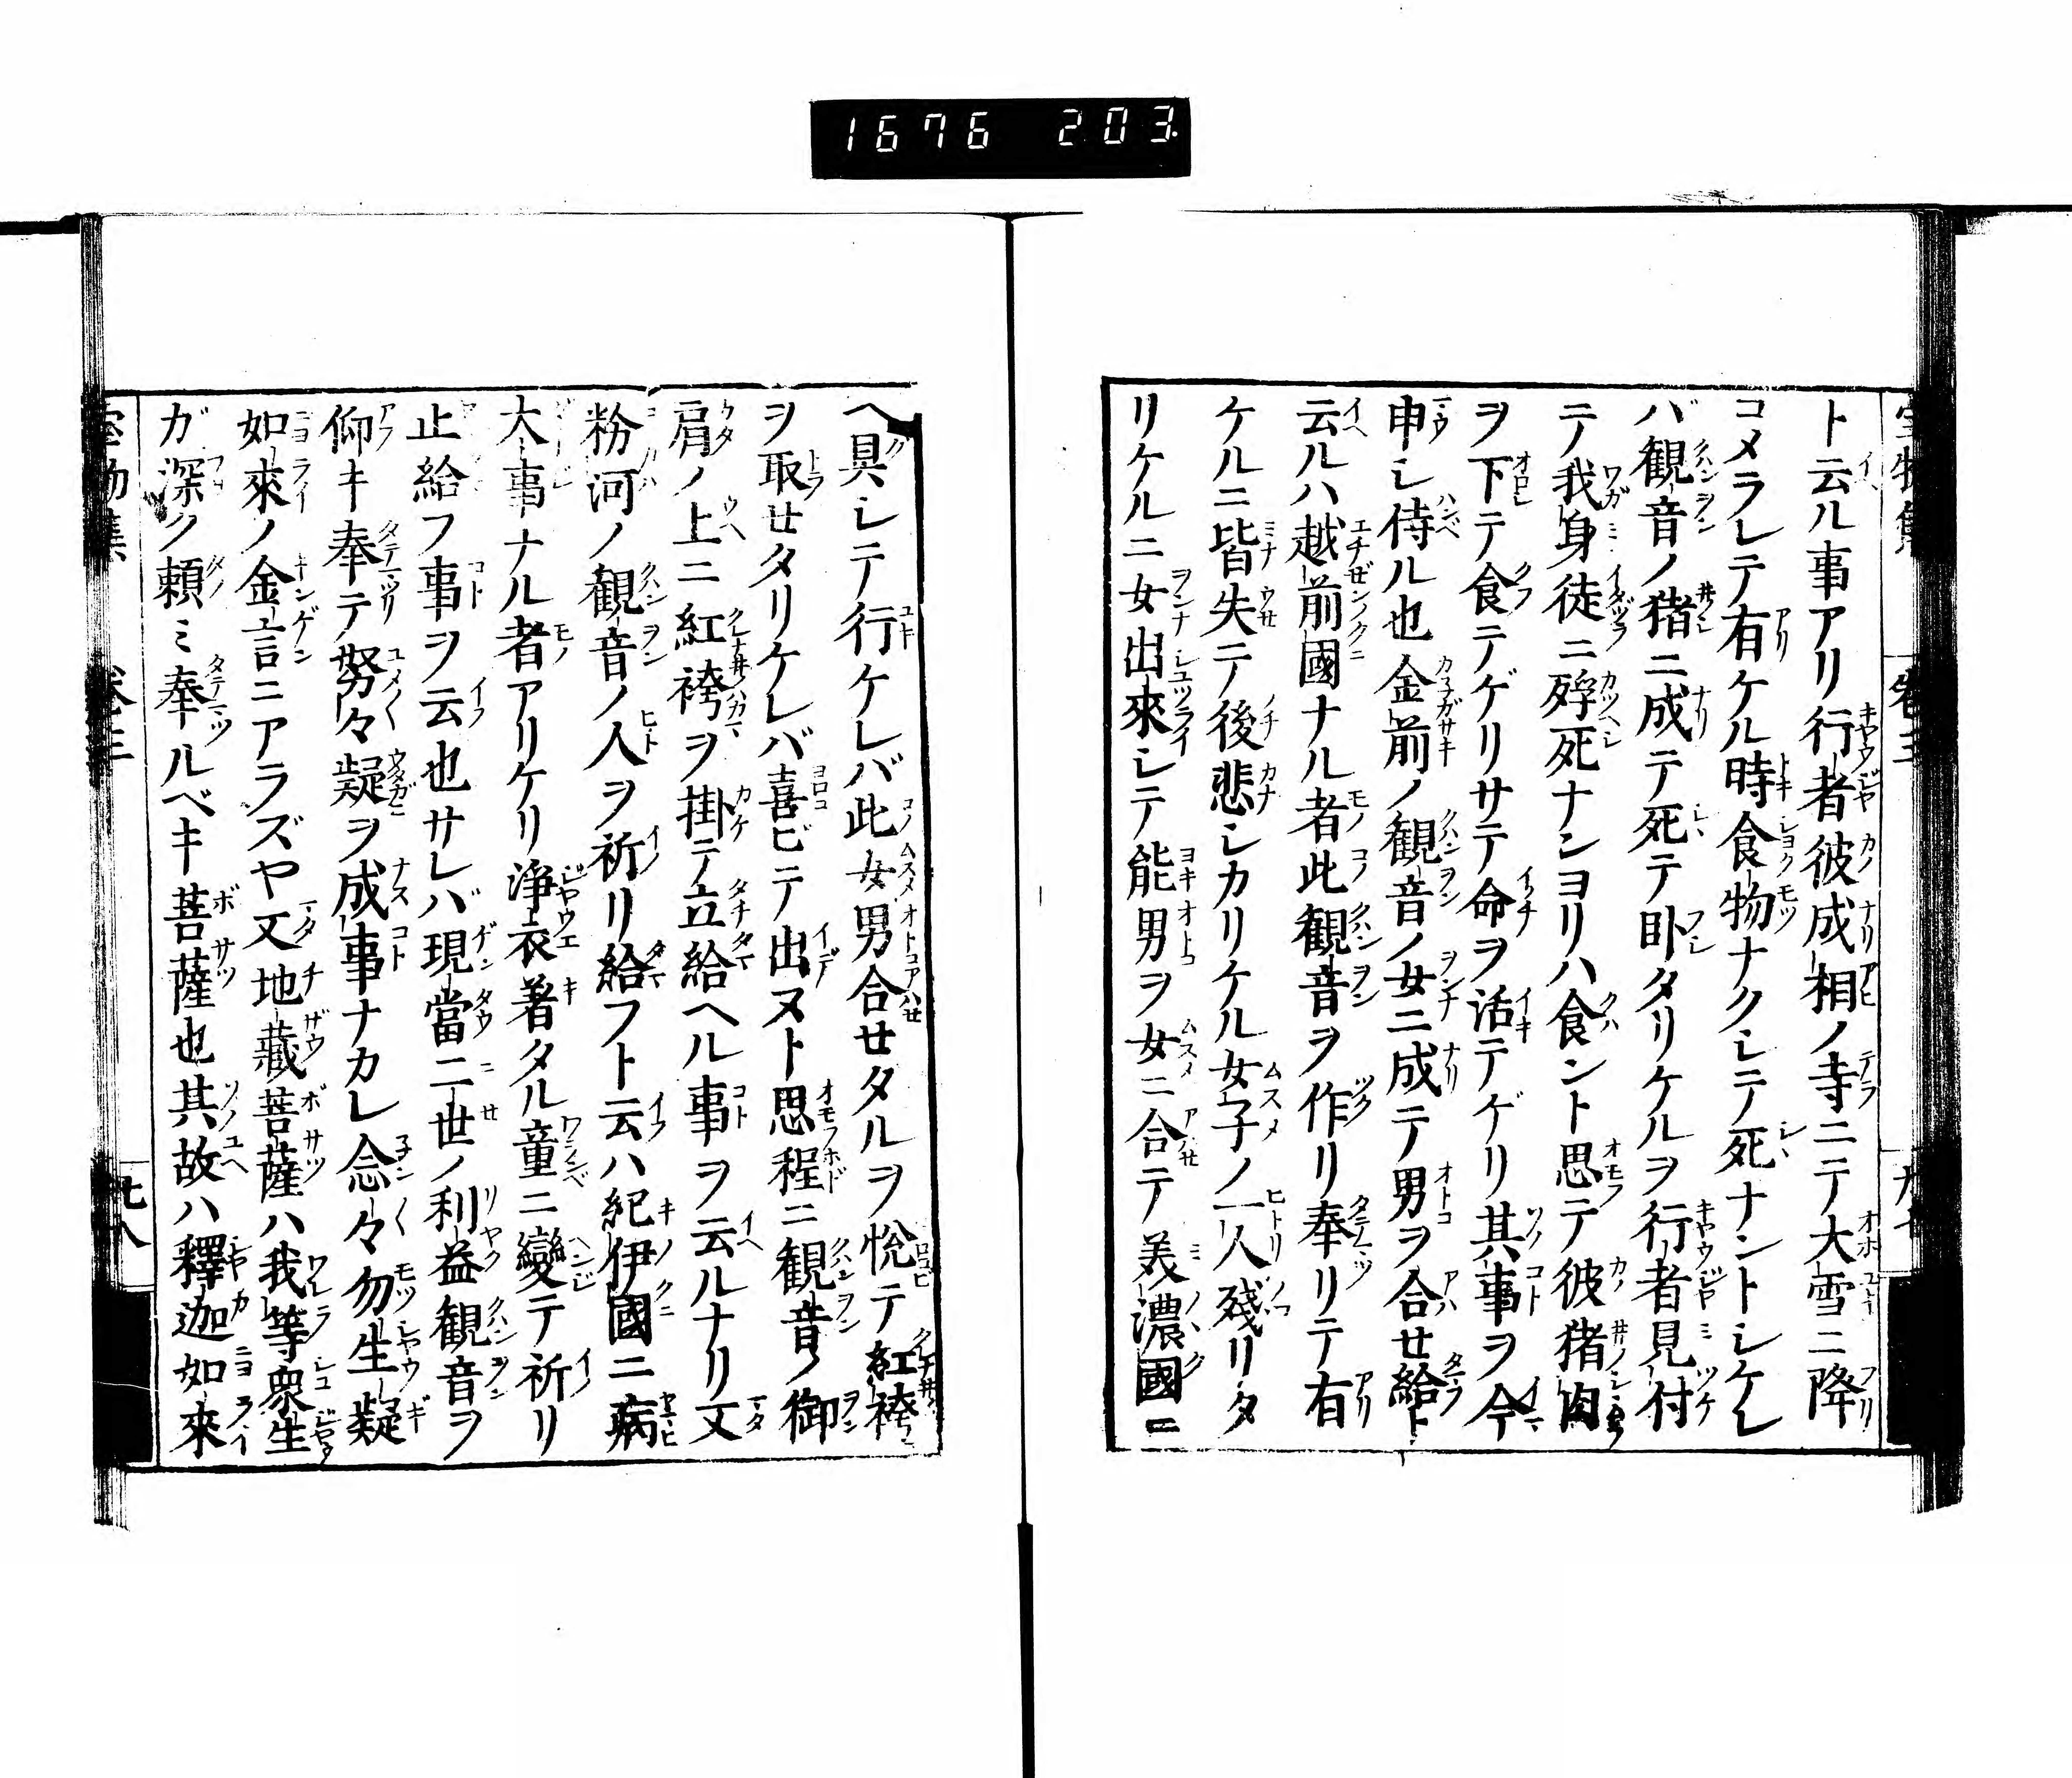 1676 203
ト云ル事アリ行者彼成相ノ寺ニテ大雪ニ降
コメラレテ有ケル時食物ナクシテ死ナントシケレ
バ観音ノ猪ニ成テ死テ卧タリケルヲ行者見付
テ我身徒ニ殍死ナンヨリハ食ント思テ彼猪肉
ヲ下テ食テゲリサテ命ヲ活テゲリ其事ヲ今
申シ侍ル也金前ノ観音ノ女ニ成テ男ヲ合せ給ト
云ルハ越前國ナル者此観音ヲ作リ奉リテ有
ケルニ皆失テ後悲シカリケル女子ノ一人残リタ
リケルニ女出來シテ能男ヲ女ニ合テ美濃國ニ
ヘ具シテ行ケレバ此女男合せタルヲ悦テ紅袴
ヲ取せタリケレバ喜ビテ出ヌト思程ニ観音ノ御
肩ノ上ニ紅袴ヲ掛テ立給ヘル事ヲ云ルナリ又
粉河ノ観音ノ人ヲ祈リ給フト云ハ紀伊國ニ病
大事ナル者アリケリ浄衣著タル童ニ變テ祈リ
止給フ事ヲ云也サレバ現當二世ノ利益観音ヲ
仰キ奉テ努々疑ヲ成事ナカレ念々勿生疑
如來ノ金言ニアラズヤ又地藏菩薩ハ我等衆生
ガ深ク頼ミ奉ルベキ菩薩也其故ハ釋迦如來